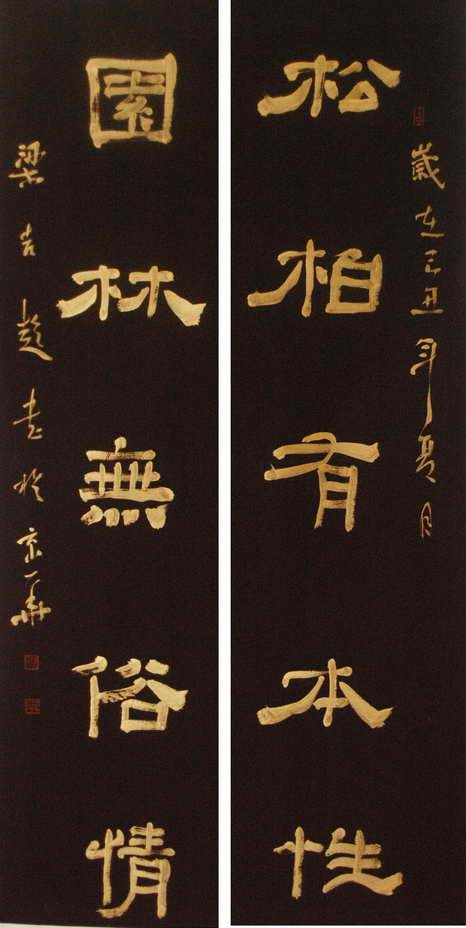 歲在己丑年夏月
松柏有本性
園林無俗情
梁吉龍書於京華